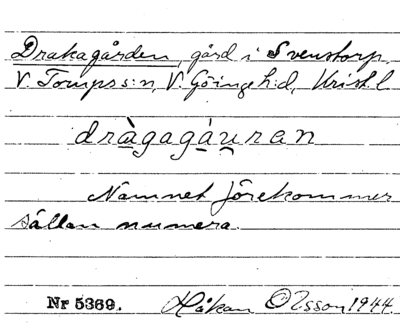 Drakagården, gård i Svenstorp,
V. Torups s:n, V. Göinge h:d, Krist. l.
dràgagáu̯ran
Namnet förekommer
sällan numera.
Nr 5369. Håkan Olsson 1944.